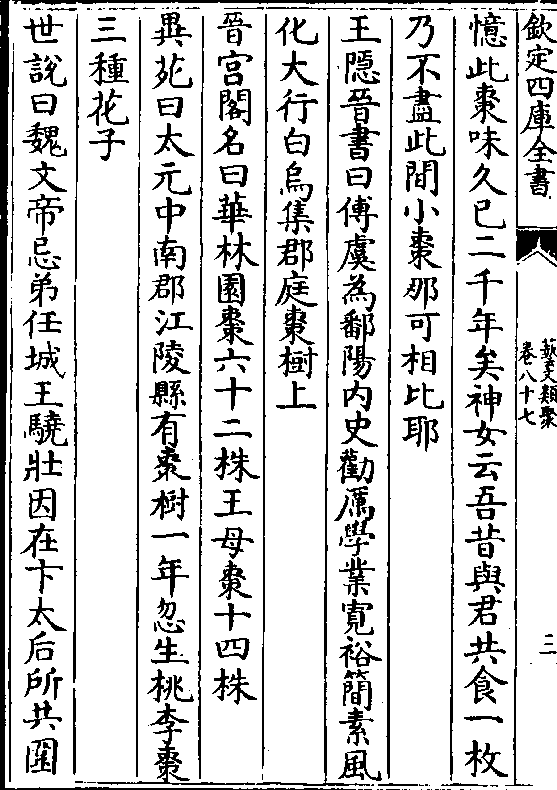 欽定四庫全書
藝文類聚
卷八十七
三
憶此棗味久已二千年矣神女云吾昔與君共食一枚
乃不盡此間小棗那可相比耶
王隠晉書曰傅虞為鄱陽内史勸厲學業寛裕簡素風
化大行白烏集郡庭棗樹上
晉宫閣名曰華林園棗六十二株王母棗十四株
異苑曰太元中南郡江陵縣有棗樹一年忽生桃李棗
三種花子
世說曰魏文帝忌弟任城王驍壯因在卞太后所共圍